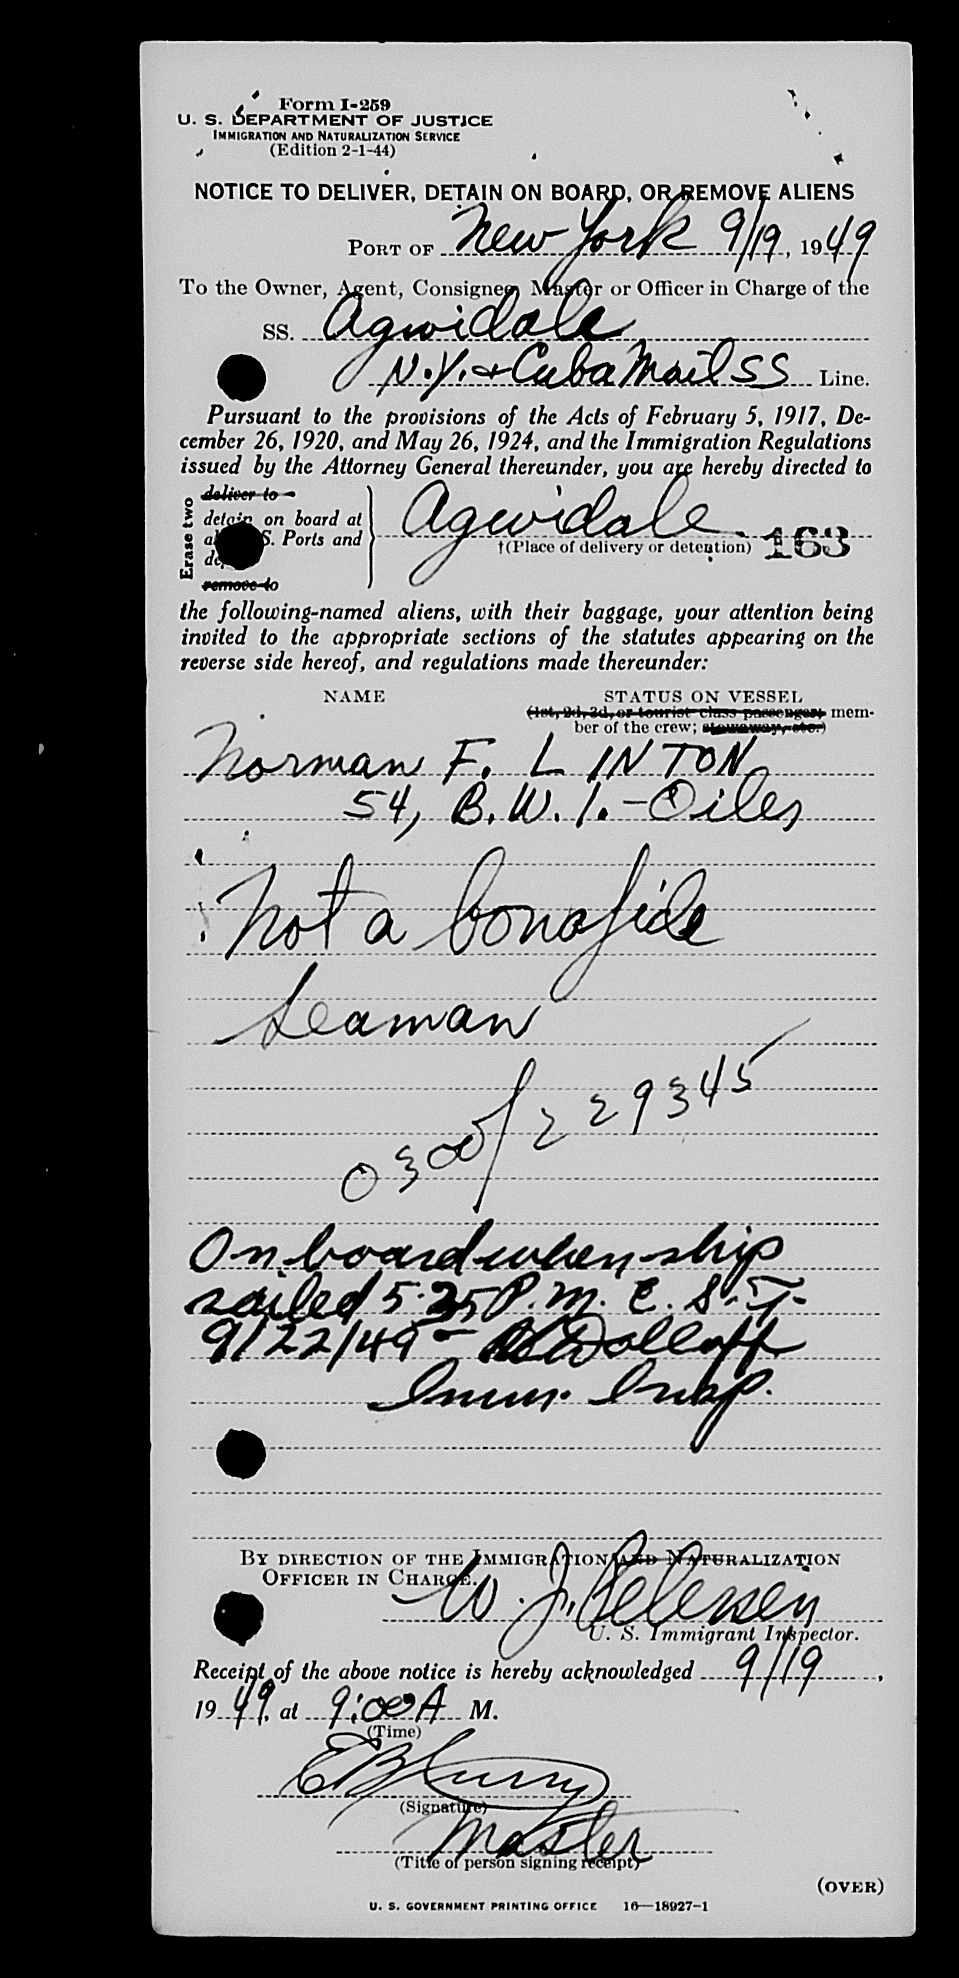 Form I-259
U. S. DEPARTMENT OF JUSTICE
IMMIGRATION AND NATURALIZATION SERVICE
(Edition 2-1-44)
NOTICE TO DELIVER, DETAIN ON BOARD, OR REMOVE ALIENS
PORT OF New York 9/19, 1949
To the Owner, Agent, Consignee, Master or Officer in Charge of the
SS. Agwidale
N.Y. & Cuba Mail SS Line.
Pursuant to the provisions of the Acts of February 5, 1917, De-
cember 26, 1920, and May 26, 1924, and the Immigration Regulations
issued by the Attorney General thereunder, you are hereby directed to
Erase two
deliver to
detain on board at
S. Ports and
remove to
Agwidale
†(Place of delivery or detention) 163
the following-named aliens, with their baggage, your attention being
invited to the appropriate sections of the statutes appearing on the
reverse side hereof, and regulations made thereunder:
NAME STATUS ON VESSEL
(1st, 2d, 3d, or tourist class passenger; mem-
ber of the crew; stowaway, etc.)
Norman F. LINTON
54, B.W.I. - Oiler
Not a bonafide
Seaman
0300/229345
On board when ship
sailed 5:35 P.M. E.S.T.
9/22/49 - Dolloff
Imm. Insp.
BY DIRECTION OF THE IMMIGRATION AND NATURALIZATION
OFFICER IN CHARGE.
W. J. Petersen
U. S. Immigrant Inspector.
Receipt of the above notice is hereby acknowledged 9/19,
1949, at 9:00 A M.
(Time)
(Signature)
Master
(Title of person signing receipt)
(OVER)
U. S. GOVERNMENT PRINTING OFFICE 16—18927-1